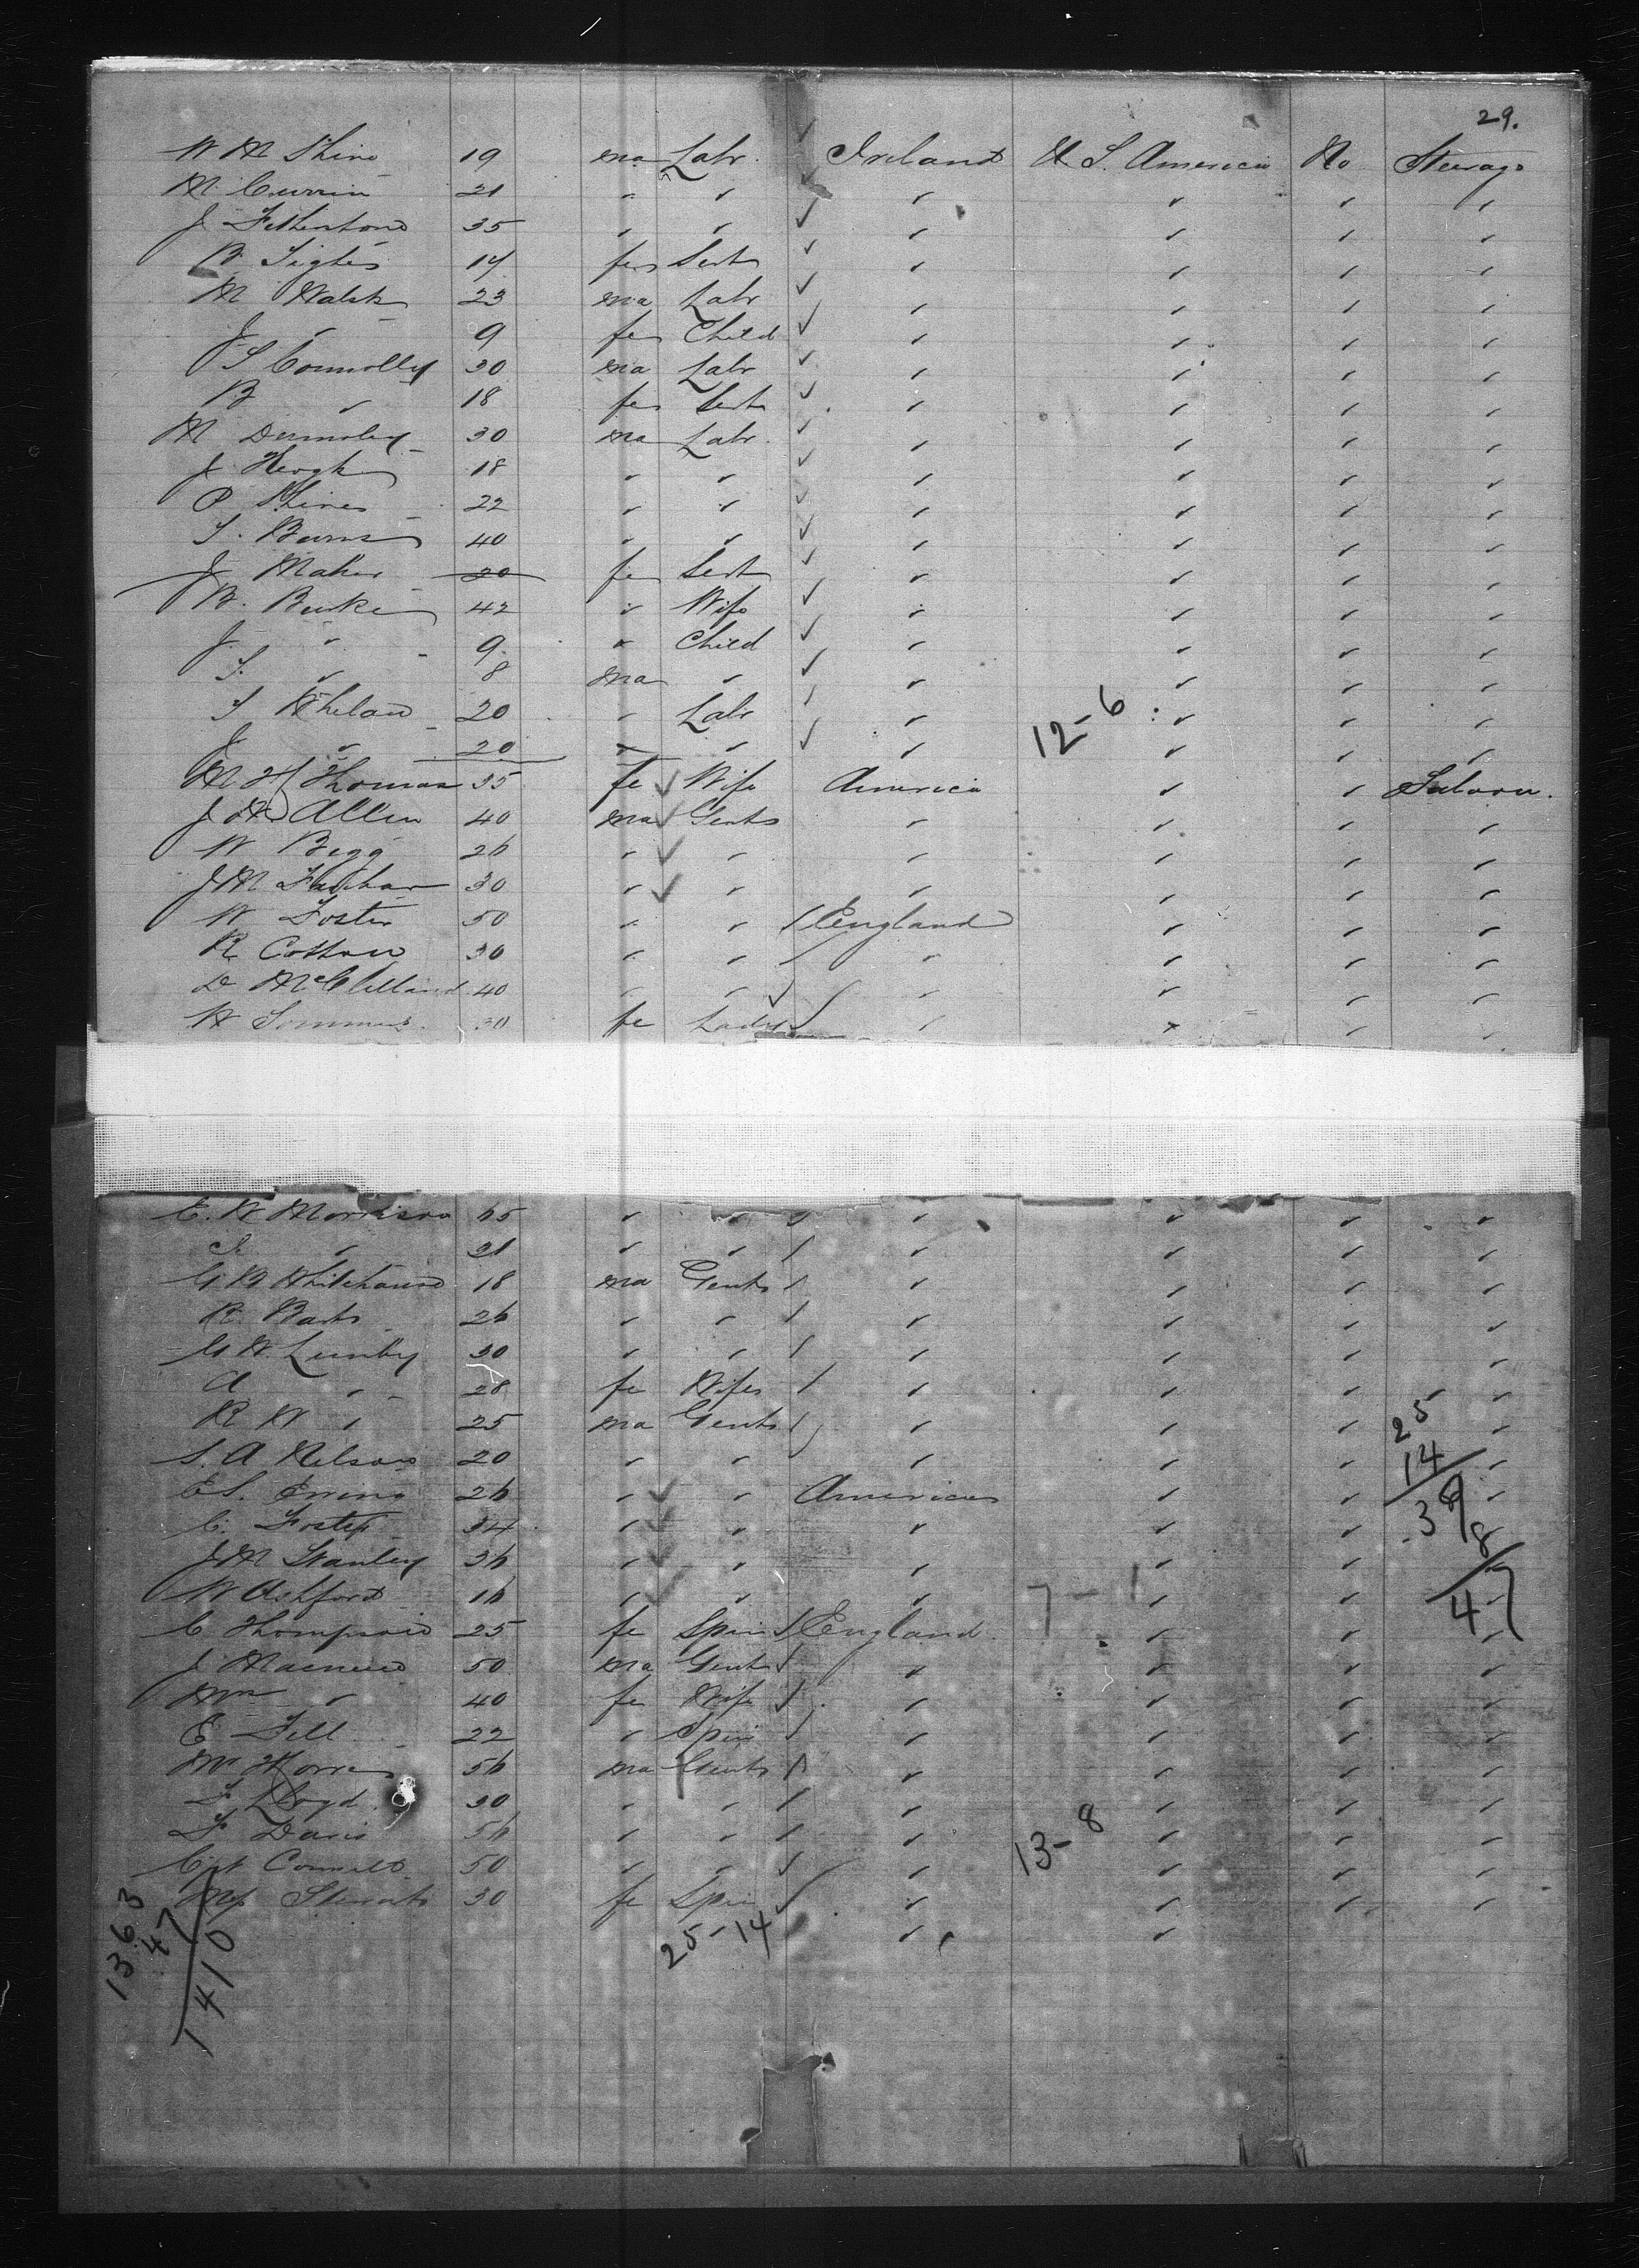 29.
W M Shine 19 ma Labr. Ireland U S. America No Steerage
M. Currin 21 " " " " " "
J Fetherstone 35 " " " " " "
B Tighe 14 fe Sert " " " "
M Walsh 23 ma Labr " " " "
J " 9 fe Child " " " "
S Connolly 30 ma Labr " " " "
B " 18 fe Sert " " " "
M 30 ma Labr. " " " "
J Keogh 18 " " " " " "
P Shine 22 " " " " " "
T. Burns 40 " " " " " "
J Maher 20 fe Sert " " " "
B. Burke 42 " Wife " " " "
J " 9 " Child " " " "
T. " 8 ma " " " " "
T Whelan 20 " Labr " " " "
12-6
J " 20 " " " " " "
M H Thomas 35 fe Wife America " " Saloon.
J H Allen 40 ma Gents " " " "
W Begg 26 " " " " " "
J M 30 " " " " " "
W Foster 50 " " England " " "
R Cotton 30 " " " " " "
D McClelland 40 " " " " " "
W 30 fe Lady " " " "
E. W Morrison 65 " " " " " "
" 21 " " " " " "
G. B Whitehouse 18 ma Gents " " " "
R. 26 " " " " " "
G W. Lumby 30 " " " " " "
A " 28 fe Wife " " " "
R W " 25 ma Gents " " " "
25
S. A Nelson 20 " " " " " "
14
E S. Ewing 26 " " America " " "
39
C. Foster 34 " " " " " "
8
J M Stanley 36 " " " " " "
W Ashford 16 " " " " " "
7-1
47
C Thompson 25 fe Spin England " " "
J 50 ma Gents " " " "
Mrs " 40 fe Wife " " " "
E Fell 22 " Spin " " " "
Mr 56 ma Gents " " " "
F Lloyd 30 " " " " " "
F Davis 56 " " " " " "
13-8
Cpt 50 " " " " " "
30 fe Spin " " " "
25-14
1363
47
1410